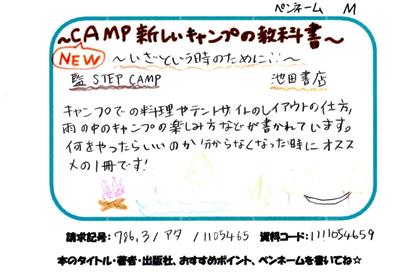 ペンネーム M
~CAMP 新しいキャンプの教科書~
NEW
~いざという時のために…~
監 STEP CAMP 池田書店
キャンプでの料理やテントサイトのレイアウトの仕方,
雨の中のキャンプの楽しみ方などが書かれています。
何をやったらいいのか分からなくなった時にオスス
メの1冊です!
請求記号: 786.3/アタ /1105465 資料コード:1111054659
本のタイトル・著者・出版社、おすすめポイント、ペンネームを書いてね☆